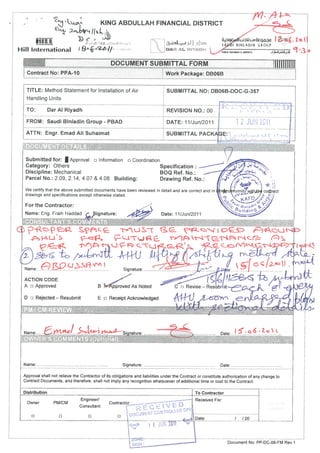 M. Ala
KING ABDULLAH FINANCIAL DISTRICT
HILL
Hill International
18-6-2011
DAR AL RIYADH
SAUDI BINLADIN GROUP
18.06.2011
9:30
DOCUMENT SUBMITTAL FORM
Contract No: PPA-10
Work Package: DB06B
TITLE: Method Statement for Installation of Air Handling Units
SUBMITTAL NO: DB06B-DOC-G-357
TO: Dar Al Riyadh
REVISION NO.: 00
FROM: Saudi Binladin Group - PBAD
DATE: 11/Jun/2011
12 JUN 2011
ATTN: Engr. Emad Ali Suhaimat
SUBMITTAL PACKAGE
DOCUMENT DETAILS
Submitted for: Approval □ Information □ Coordination
Category: Others
Specification :
Discipline: Mechanical
BOQ Ref No.:
Parcel No.: 2.09, 2.14, 4.07 & 4.08 Building:
Drawing Ref. No.:
We certify that the above submitted documents have been reviewed in detail and are correct and in
drawings and specifications except otherwise stated.
For the Contractor:
Name: Eng. Firah Haddad Signature: Date: 11/Jun/2011
CONSULTANT'S COMMENTS
① PROPER SPACE MUST BE PROVIDED AROUND
AHU's FOR FUTURE MAINTENANCE AS
PER MANUFACTURER'S RECOMMENDATIONS
② SBG to state AHU lifting/shifting method
Name: ABDUSSAMI Signature: 15/06/2011
ACTION CODE
SBG to submit
A □ Approved B Approved As Noted C □ Revise - Resubmit
each
D □ Rejected - Resubmit E □ Receipt Acknowledged
AHU room enlarged plan
with sectional details
PM / CM REVIEW
Name: Emad Suhaimat Signature: Date: 15.06.2011
OWNER'S COMMENTS (Optional)
Name: Signature: Date:
Approval shall not relieve the Contractor of its obligations and liabilities under the Contract or constitute authorization of any change to
Contract Documents, and therefore, shall not imply any recognition whatsoever of additional time or cost to the Contract.
Distribution
To Contractor
Owner PM/CM Engineer/Consultant Contractor
Received For:
RECEIVED
DOCUMENT CONTROLLER OFFICE
11 JUN 2011
Date: / /20
SIGN:
Document No: PP-DC-08-FM Rev 1